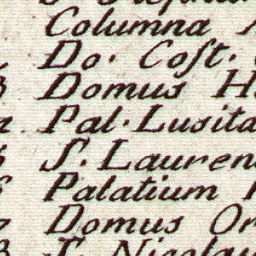 Columna
Do. Coſt.
Domus H
Pal. Lusita
S. Lauren
Palatium
Domus Or
S. Nicolau